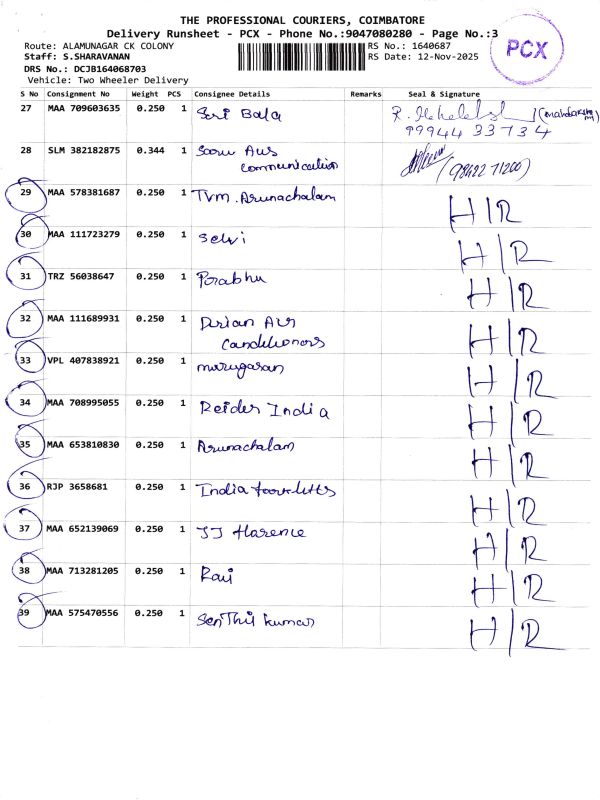 THE PROFESSIONAL COURIERS, COIMBATORE
Delivery Runsheet - PCX - Phone No.:9047080280 - Page No.:3
Route: ALAMUNAGAR CK COLONY RS No.: 1640687
Staff: S.SHARAVANAN RS Date: 12-Nov-2025
DRS No.: DCJB164068703
Vehicle: Two Wheeler Delivery
PCX
S No Consignment No Weight PCS Consignee Details Remarks Seal & Signature
27 MAA 709603635 0.250 1 Sri Bala
99944 33734
28 SLM 382182875 0.344 1 Aus (98422 71200)
communication
29 MAA 578381687 0.250 1 TVM. Arunachalam H/R
30 MAA 111723279 0.250 1 Selvi H/R
31 TRZ 56038647 0.250 1 Prabhu H/R
32 MAA 111689931 0.250 1 H/R
33 VPL 407838921 0.250 1 murugasan H/R
34 MAA 708995055 0.250 1 Reider India H/R
35 MAA 653810830 0.250 1 Arunachalam H/R
36 RJP 3658681 0.250 1 India H/R
37 MAA 652139069 0.250 1 JJ Harence H/R
38 MAA 713281205 0.250 1 Ravi H/R
39 MAA 575470556 0.250 1 SenThil kumar H/R